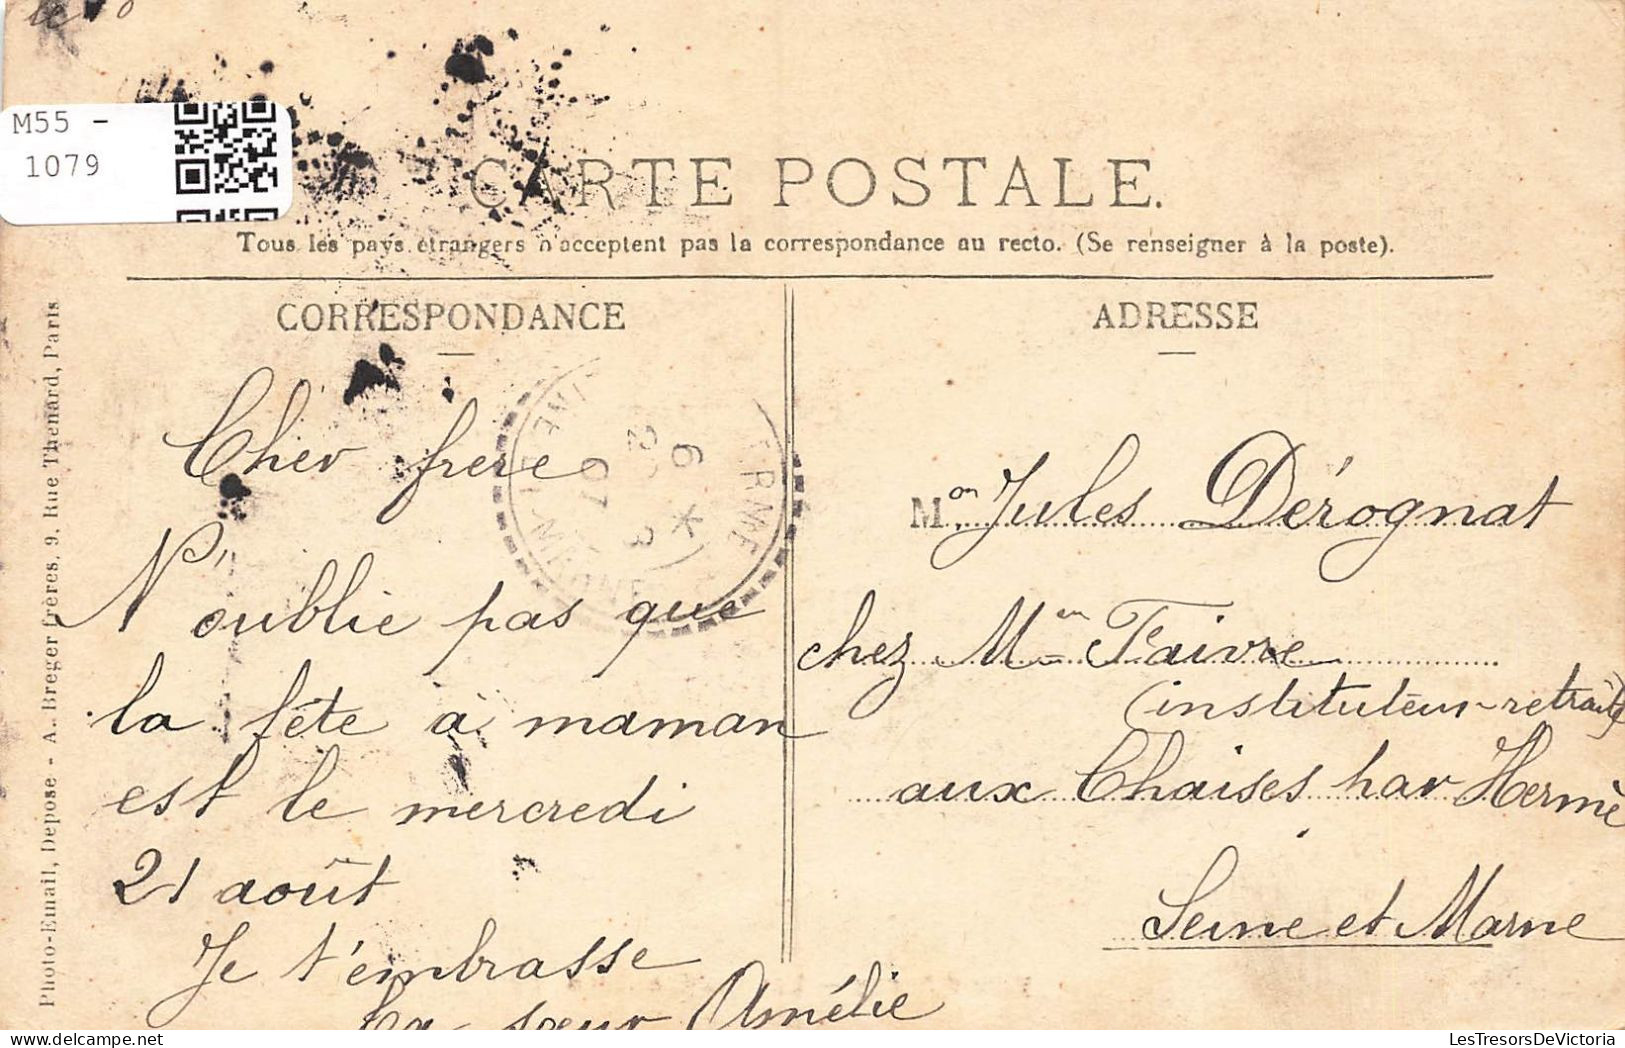 M55 -
1079
CARTE POSTALE.
Tous les pays étrangers n'acceptent pas la correspondance au recto. (Se renseigner à la poste).
CORRESPONDANCE
Cher frere
N'oublie pas que
la fête à maman
est le mercredi
21 août
Je t'embrasse
ta sœur Amélie
ADRESSE
Mon Jules Dérognat
chez Mon Faivre
(instituteur retraité)
aux Chaises par Hermé
Seine et Marne
Photo-Email, Depose - A. Breger frères, 9, Rue Thenard, Paris
LesTresorsDeVictoria